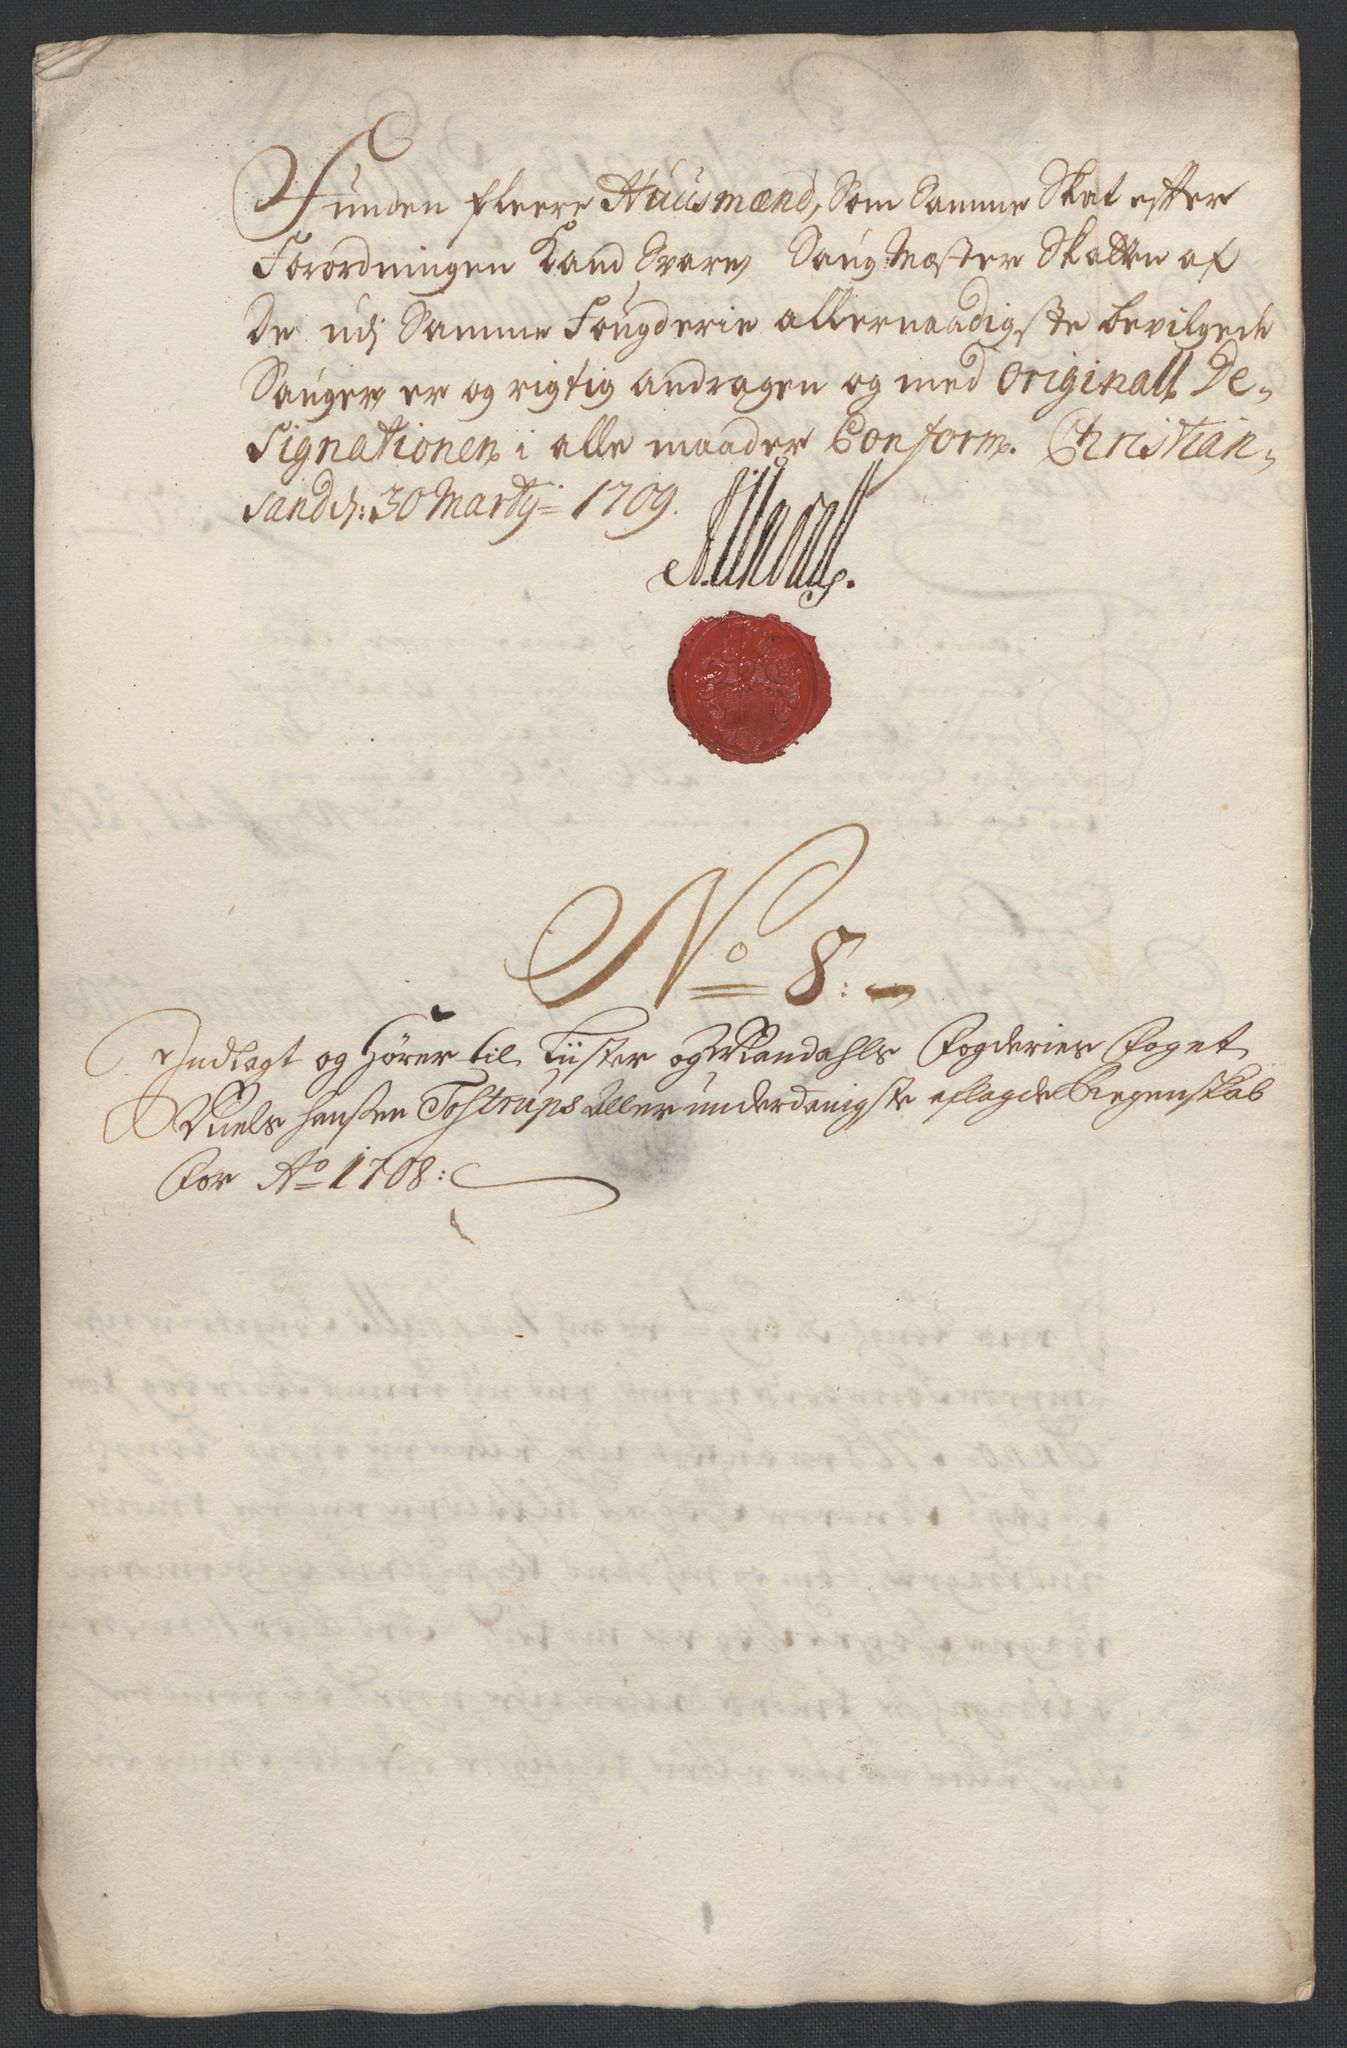 Funden fleere Huusmænd, som samme Skat efter
Forordningen Kand Svare, Saug Mester Skatten af
De udj Samme Fougderie allernaadigste bevilgede
Sauger, er og rigtig andragen og med originall De-
signationen i alle maader Conform. Christian-
sand d: 30 Martij 1709.
No 8:
Indlagt og Hører til Lister og Mandahls Fogderies Foget
Niels Hansen Tostrups Aller underdanigste aflagde Regenskab
For Ao 1708: